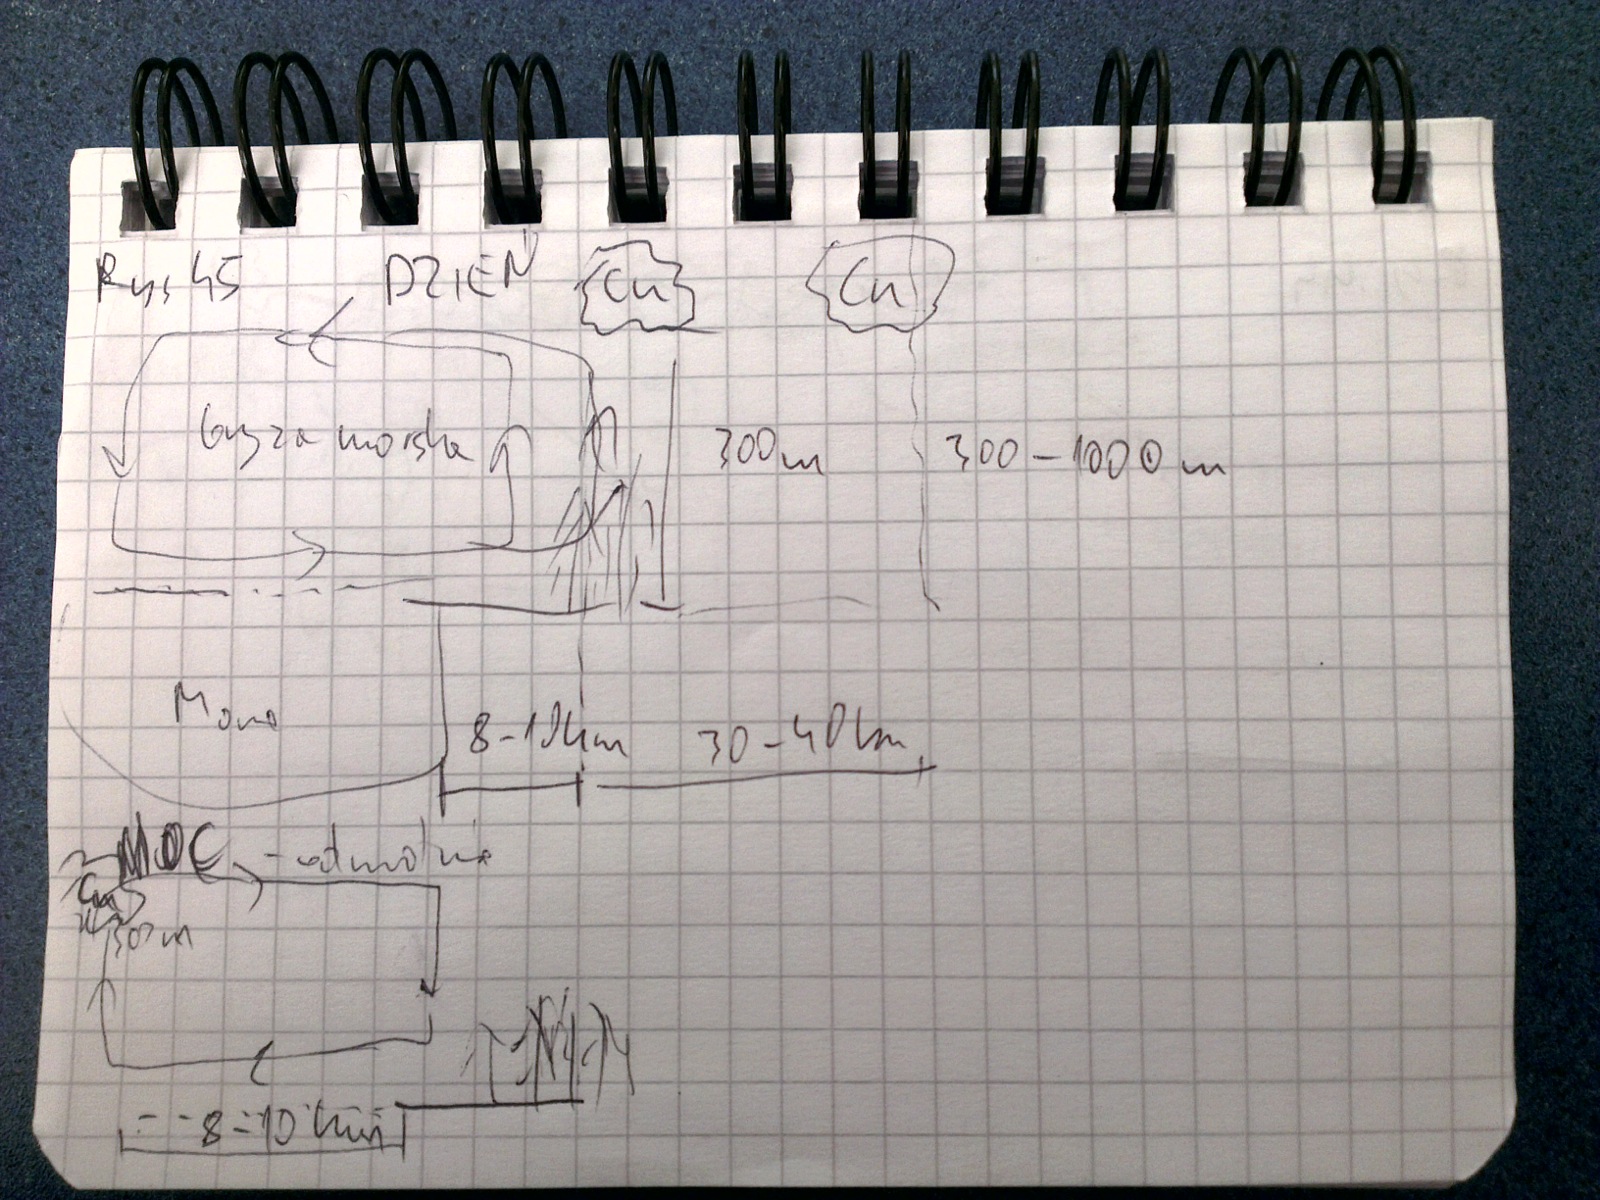 Rys 45 DZIEŃ Cu Cu
bryza morska 300m 300-1000m
8-10km 30-40km
NOC - odwrotnie
Cu
300m
8-10 km